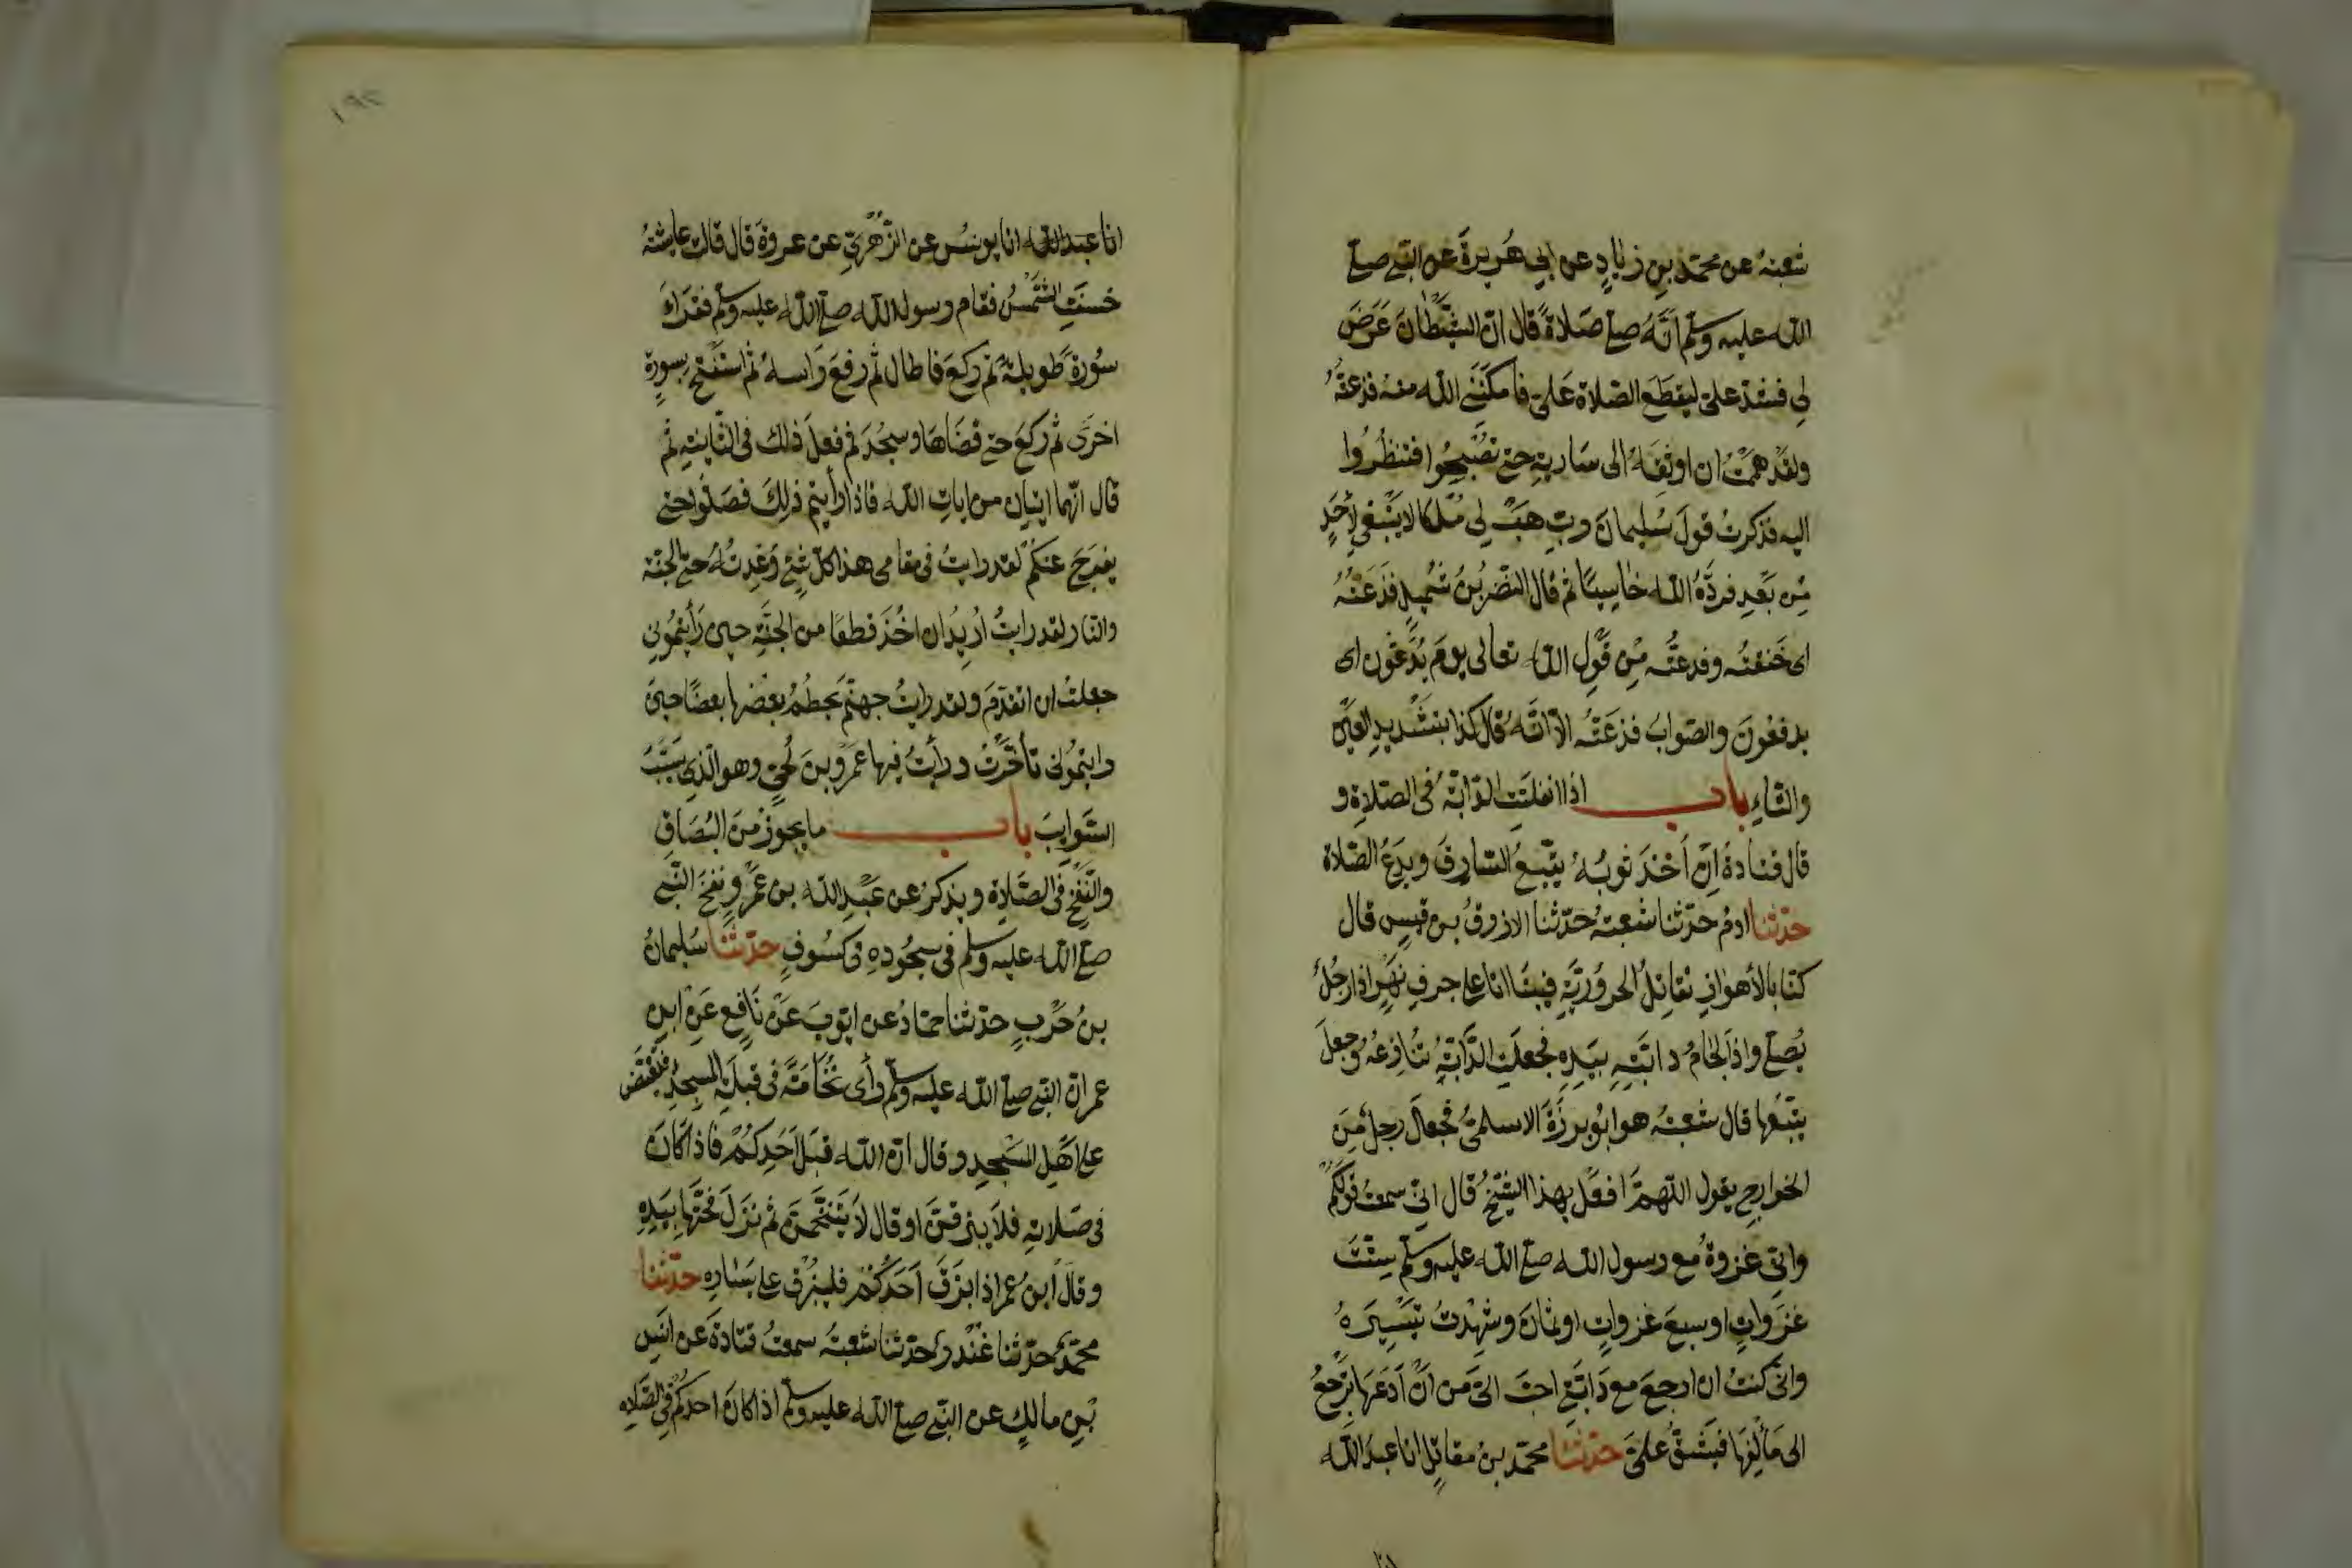 شعبة عن محمد بن زياد عن ابي هريرة عن النبي صلى
الله عليه وسلم أنه صلى صلاة قال ان الشيطان عرض
لي فشد علي ليقطع الصلاة علي فامكنني الله منه فذعته
ولقد هممت ان اوثقه الى سارية حتى تصبحوا فتنظروا
اليه فذكرت قول سليمان رب هب لي ملكا لا ينبغي لأحد
من بعد فرده الله خاسيئا ثم قال النضر بن شميل فذعته
اى خنقته وفدعته من قول الله تعالى يوم يدعون اى
يدفعون والصواب فدعته الا انه قال كذا بتشديد العين
والتاء باب اذا انفلتت الدابة في الصلاة و
قال قتادة ان أخذ ثوبه يتبع السارق ويدع الصلاة
حدثنا ادم حدثنا شعبة حدثنا الازرق بن قيس قال
كنا بالأهواز نقاتل الحرورية فبينا انا على جرف نهر اذا رجل
يصلي واذا لجام دابته بيده فجعلت الدابة تنازعه وجعل
يتبعها قال شعبة هو ابو برزة الاسلمي فجعل رجل من
الخوارج يقول اللهم افعل بهذا الشيخ قال اني سمعت قولكم
واني غزوة مع رسول الله صلى الله عليه وسلم ستت
غزوات اوسبع غزوات اوثمان وشهدت تيسيره
واني كنت ان ارجع مع دابتي احب الي من ان أدعها ترجع
الى مألفها فيشق علي حدثنا محمد بن مقاتل انا عبد الله
١٩٢
انا عبد الله انا يونس عن الزهري عن عروة قال قالت عايشة
خسفت الشمس فقام رسول الله صلى الله عليه وسلم فقراء
سورة طويلة ثم ركع فاطال ثم رفع راسه ثم استفتح بسورة
اخرى ثم ركع حتى قضاها وسجد ثم فعل ذلك في الثانية ثم
قال انهما ايتان من ايات الله فاذا رأيتم ذلك فصلوا حتى
يفرج عنكم لقد رايت في مقامي هذا كل شئ وعدته حتى الجنة
والنار لقد رايت أريد ان اخذ قطفا من الجنة حين رأيتموني
جعلت ان اتقدم ولقد رايت جهنم يحطم بعضها بعضا حين
رايتموني تأخرت ورأيت فيها عمرو بن لحي وهو الذي سيب
السوايب باب ما يجوز من البصاق
والنفخ في الصلاة ويذكر عن عبد الله بن عمرو نفخ النبي
صلى الله عليه وسلم في سجوده في كسوف حدثنا سليمان
بن حرب حدثنا حماد عن ايوب عن نافع عن ابن
عمر ان النبي صلى الله عليه وسلم رأى نخامة في قبلة المسجد فتغيض
على اهل المسجد وقال ان الله قبل احدكم فاذا كان
في صلاته فلا يبزقن او قال لا يتنخمن ثم نزل فحتها بيده
وقال ابن عمر اذا بزق أحدكم فليبزق على يساره حدثنا
محمد حدثنا غندر حدثنا شعبة سمعت قتادة عن انس
بن مالك عن النبي صلى الله عليه وسلم اذا كان احدكم في الصلاه